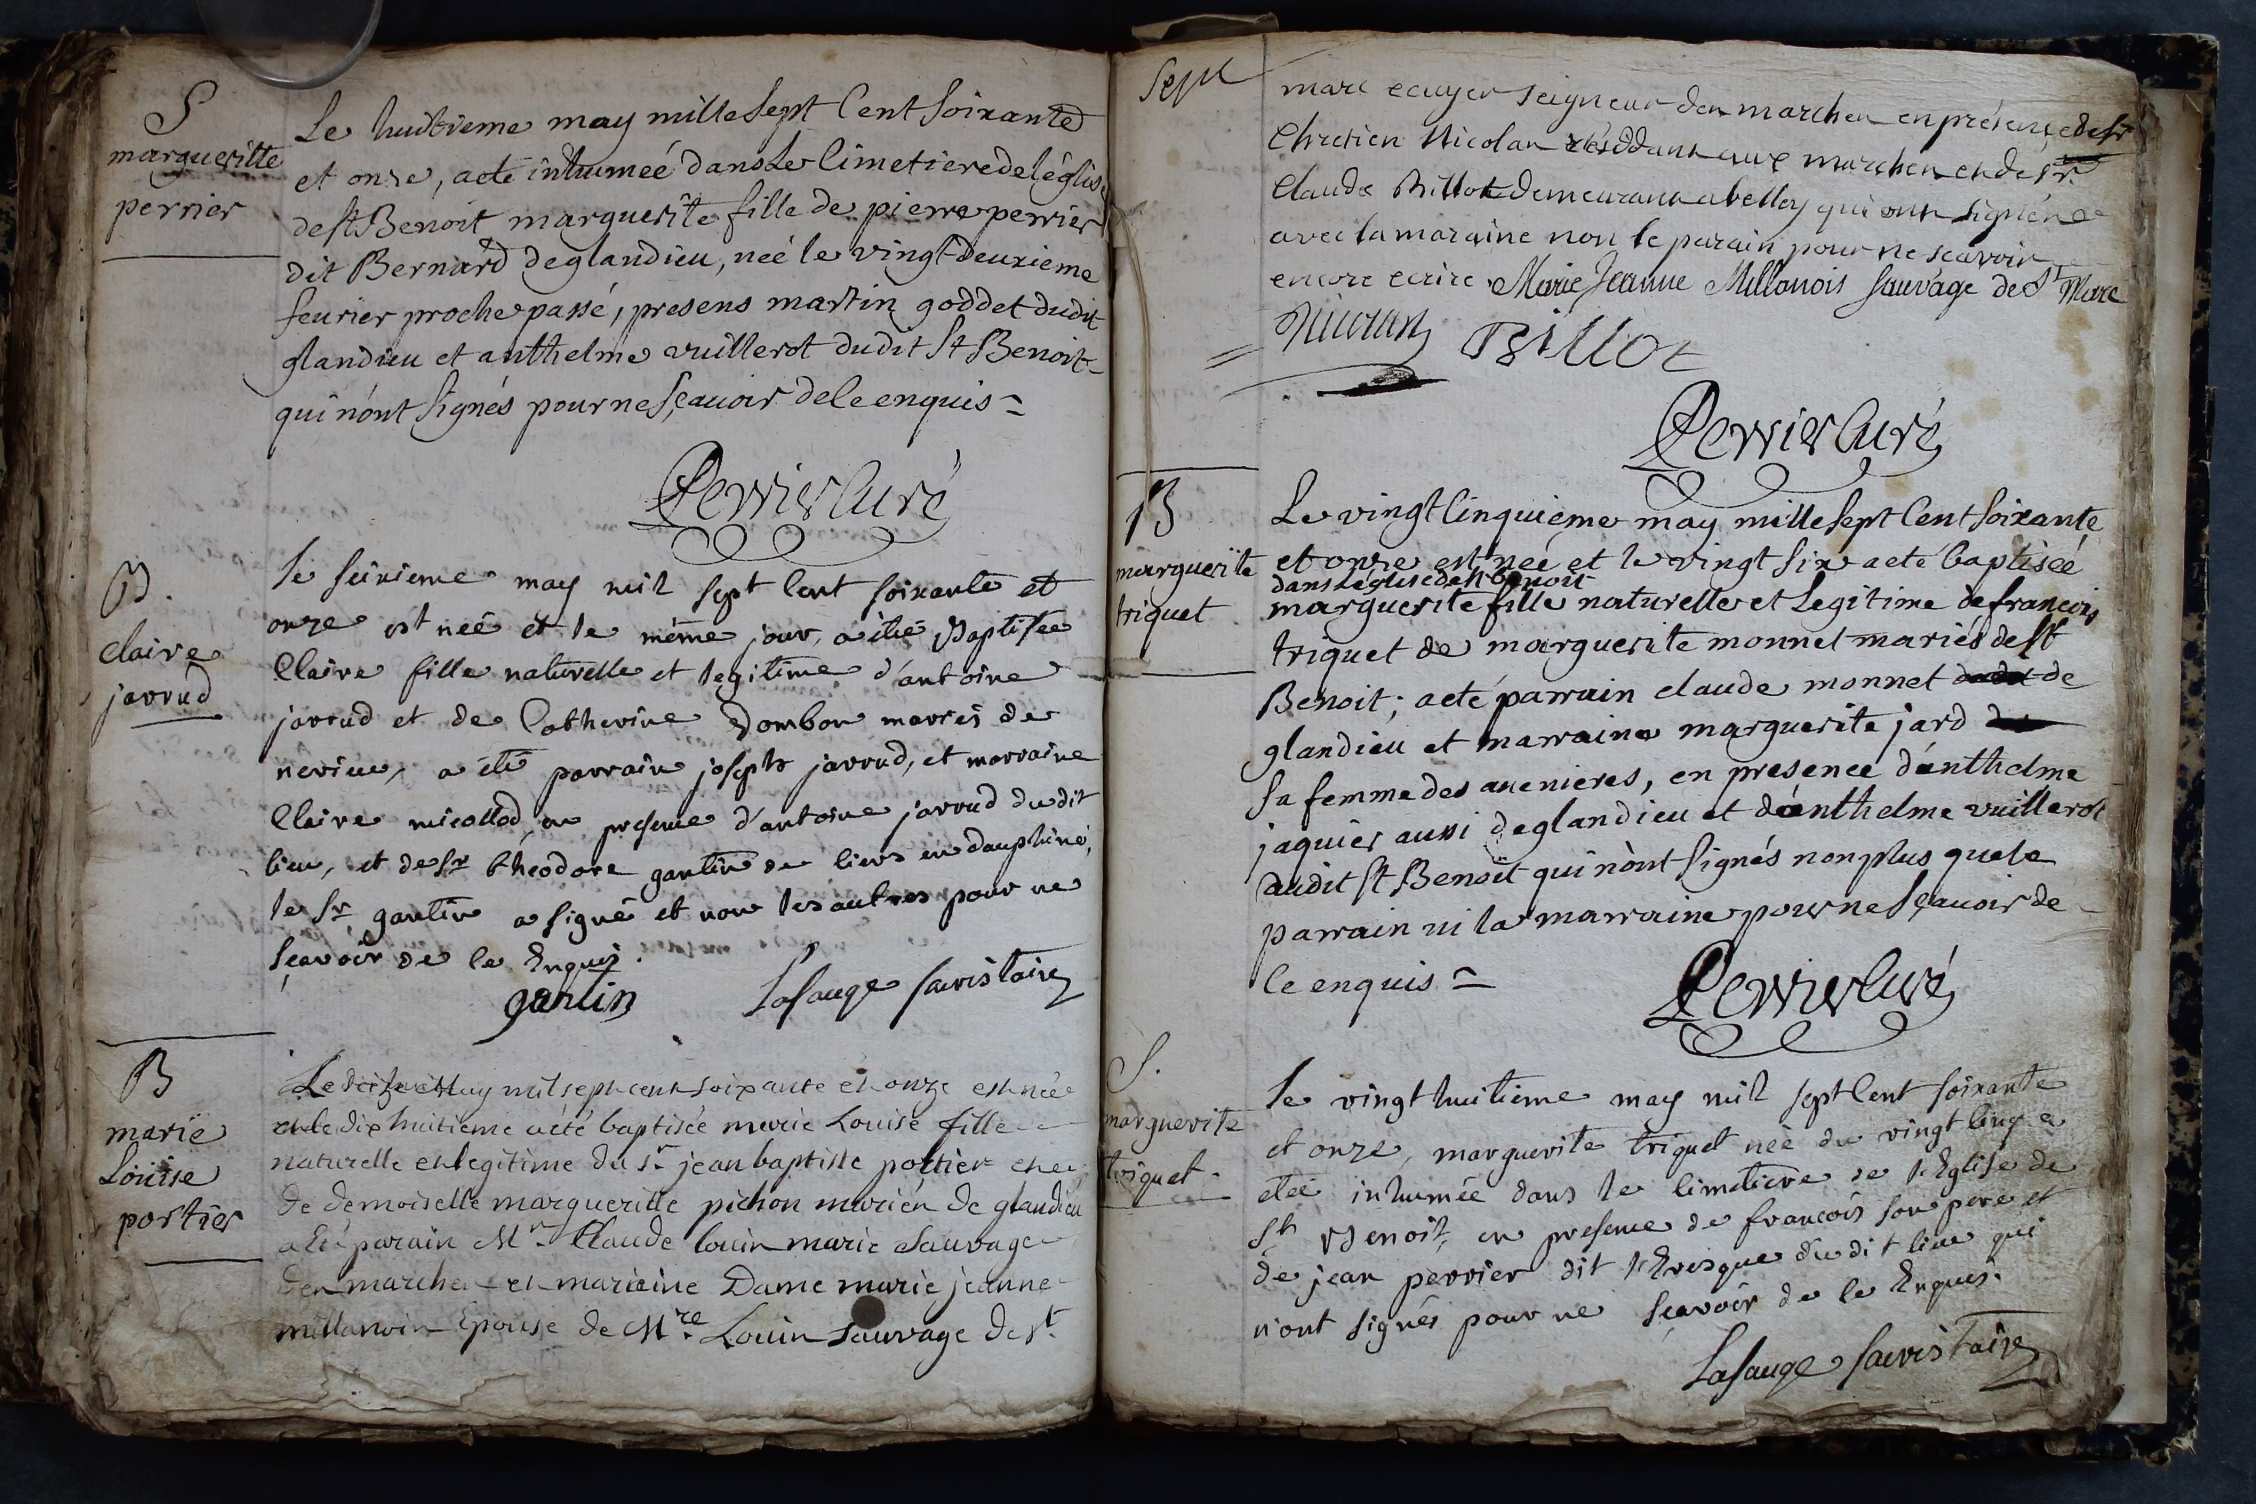 S
marguerite
perrier
Le huitieme may mille sept Cent soixante
et onze, a eté inhumée dans Le Cimetiere de léglise
de st Benoit marguerite fille de pierre perrier
dit Bernard de glandieu, neé le vingt-deuxieme
feurier proche passé, presens martin goddet dudit
glandieu et anthelme vuillerot dudit St Benoit
qui nónt signés pour ne sçauoir de le enquis =
Perrier Curé
B.
claire
jarrud
le seizieme may mil sept Cent soixante et
onze est neé et le même jour, a été Baptisée
Claire fille naturelle et legitime d'antoine
jarrud et de Catherine Dombon marieś de
nerieu, a été parrain joseph jarrud, et marraine
Claire micollod, en presence d'antoine jarrud du dit
lieu, et de Sr théodore gantin de Ciers en dauphiné,
le Sr gantin a signé et non les autres pour ne
sçavoir de le Enquis.
gantin Lasauge sacristain
B
marie
Louise
portier
Le seize May mil sept cent soixante et onze est née
et le dix huitieme a été baptisée marie Louise fille
naturelle et legitime du Sr jean baptiste portier et
de demoiselle marguerite pichon mariés de glandieu
a été parain Mr. Claude louis marie Sauvage
des marches et maraine Dame marie jeanne
millanois Epouse de Mre Louis Sauvage de St.
Sept
marc ecuyer seigneur des marches en présence de sr
Chretien Nicolas résidant aux marches et de sr
Claude Billot demeurant a belley qui ont signé
avec la maraine non le parain pour ne scavoir
encore ecrire Marie Jeanne Millanois Sauvage de St Marc
Nicolas Billot
Perrier Curé
B
marguerite
triquet
Le vingt Cinquiéme may mille sept Cent soixante
et onze est neé et le vingt six a eté baptiseé
dans L'eglise de st Benoit
marguerite fille naturelle et Legitime de francois
triquet de marguerite monnet mariés de st
Benoit; a eté parrain claude monnet de
glandieu et marraine marguerite jard
sa femme des auenieres, en presence d'anthelme
jaquier aussi de glandieu et d'anthelme vuillerot
dudit St Benoit qui nònt signés non plus que le
parrain ni la marraine pour ne sçauoir de
le enquis =
Perrier Curé
S.
marguerite
triquet
le vingt huitieme may mil sept Cent soixante
et onze, marguerite triquet neé du vingt Cinq a
eteé inhumée dans le Cimetiere de l'Eglise de
St. Benoit, en presence de francois son pere et
de jean perrier dit l'Evesque du dit lieu qui
n'ont signés pour ne sçavoir de le Enquis.
Lasauge sacristain